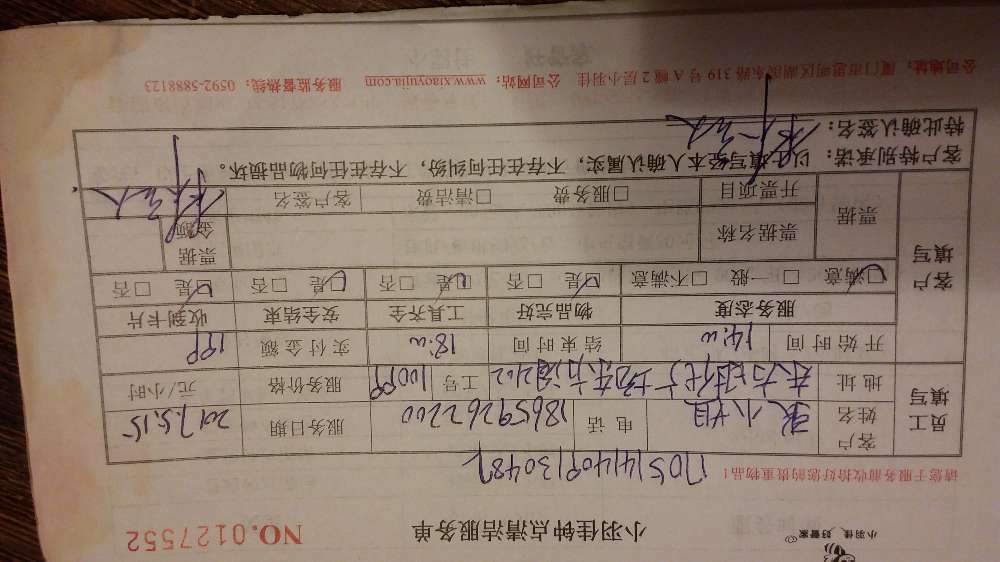 小羽佳 好管家
小羽佳钟点清洁服务单
NO.0127552
请您于服务前收拾好您的贵重物品！
员工填写
客户姓名
小姐
电话
18659262200
服务日期
2017.5.15
地址
东方时代广场东方海2402
工号
服务价格
元/小时
开始时间
14:00
结束时间
18:00
实付金额
199
客户填写
服务态度
物品完好
工具齐全
安全结束
收到卡片
□满意 □一般 □不满意
□是 □否
□是 □否
□是 □否
□是 □否
票据
票据名称
票据金额
开票项目
□服务费 □清洁费
客户签名
客户特别承诺：以上填写经本人确认属实，不存在任何纠纷，不存在任何物品损坏。
特此确认签名：
公司地址：厦门市思明区湖滨东路319号A幢2层小羽佳 公司网站：www.xiaoyujia.com 服务监督热线：0592-5888123